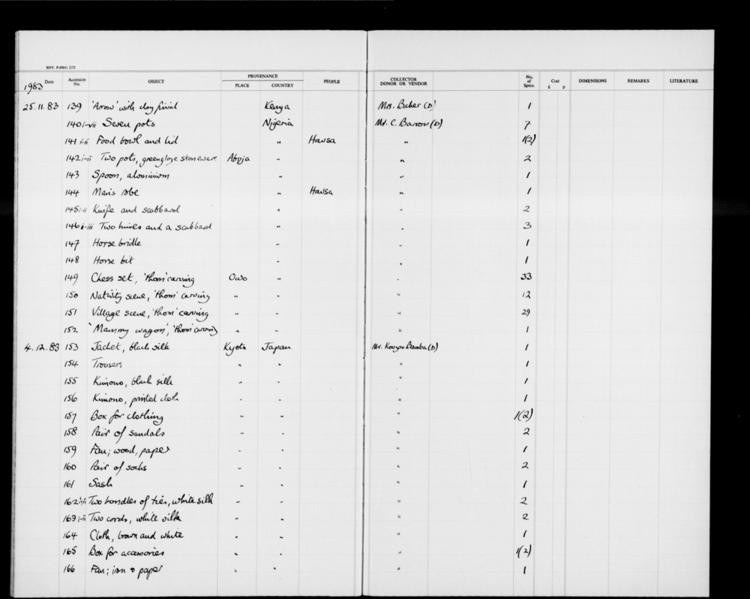 1983
Date Accession No. OBJECT PROVENANCE PLACE COUNTRY PEOPLE COLLECTOR DONOR OR VENDOR No. of Specs. Cost £ p DIMENSIONS REMARKS LITERATURE
25.11.83 139 'Arrow' with clay finial Kenya Mrs. Baker (D) 1
140 i-vii Seven pots Nigeria Mr. C. Barrow (D) 7
141 i-ii Food bowl and lid " Hausa " 1(2)
142 i-ii Two pots, greenglaze stoneware Abuja " " 2
143 Spoon, aluminium " " 1
144 Man's robe " Hausa " 1
145 i-ii Knife and scabbard " " 2
146 i-iii Two knives and a scabbard " " 3
147 Horse bridle " " 1
148 Horse bit " " 1
149 Chess set, 'thorn' carving Owo " " 33
150 Nativity scene, 'thorn' carving " " " 12
151 Village scene, 'thorn' carving " " " 29
152 'Mammy wagon', 'thorn' carving " " " 1
4.12.83 153 Jacket, black silk Kyoto Japan Mr. (D) 1
154 Trousers " " " 1
155 Kimono, black silk " " " 1
156 Kimono, printed cloth " " " 1
157 Box for clothing " " " 1(2)
158 Pair of sandals " " " 2
159 Fan; wood, paper " " " 1
160 Pair of socks " " " 2
161 Sash " " " 1
162 i-ii Two bundles of ties, white silk " " " 2
163 i-ii Two cords, white silk " " " 2
164 Cloth, brown and white " " " 1
165 Box for accessories " " " 1(2)
166 Fan; iron & paper " " " 1